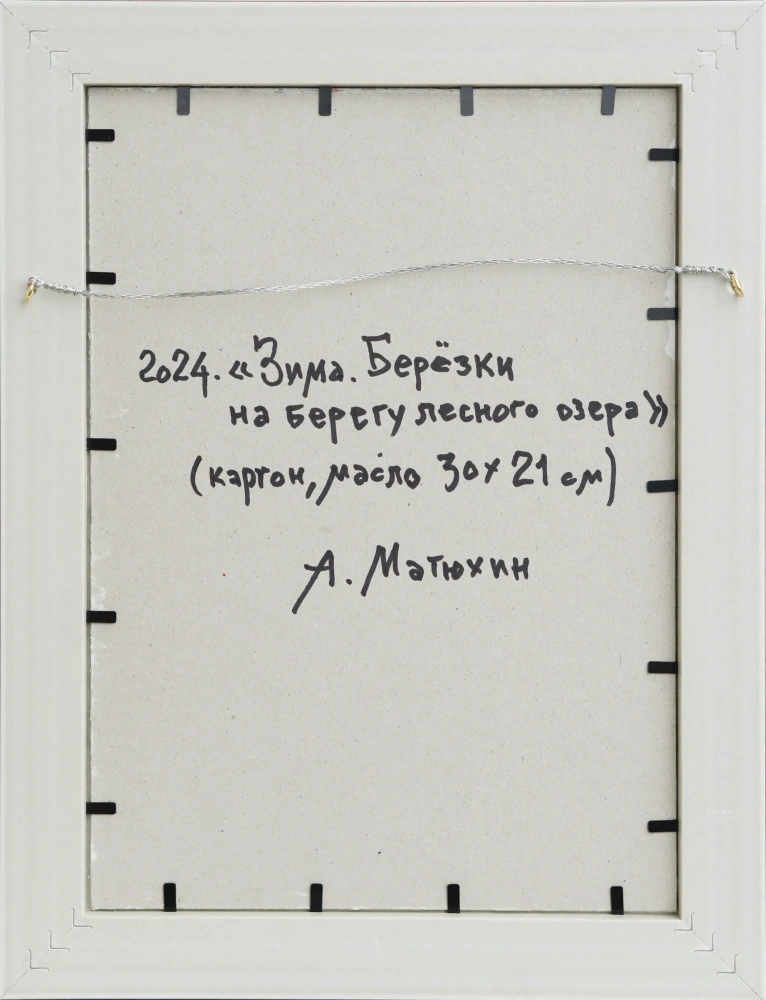 2024. «Зима. Берёзки
на берегу лесного озера»
(картон, масло 30х21 см)
А. Матюхин